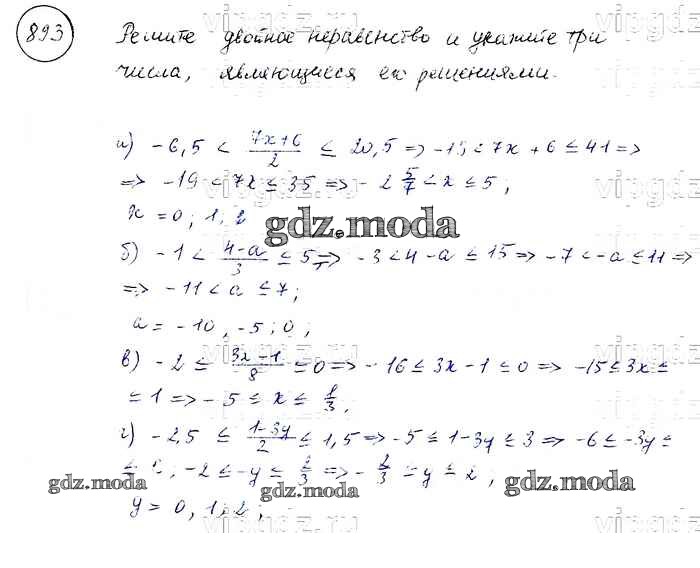 893 Решите двойное неравенство и укажите три
числа, являющиеся ее решениями.
а) -6,5 < (7x+6)/2 ≤ 20,5 => -13 < 7x + 6 ≤ 41 =>
=> -19 < 7x ≤ 35 => -2 5/7 < x ≤ 5;
x = 0; 1, 2
gdz.moda
б) -1 < (4-a)/3 ≤ 5 => -3 < 4-a ≤ 15 => -7 < -a ≤ 11 =>
=> -11 < a ≤ 7;
a = -10, -5; 0;
в) -2 ≤ (3x-1)/8 ≤ 0 => -16 ≤ 3x-1 ≤ 0 => -15 ≤ 3x ≤
≤ 1 => -5 ≤ x ≤ 1/3,
г) -2,5 ≤ (1-3y)/2 ≤ 1,5 => -5 ≤ 1-3y ≤ 3 => -6 ≤ -3y ≤
≤ ; -2 ≤ -y ≤ 2/3 => -2/3 ≤ y ≤ 2;
gdz.moda gdz.moda gdz.moda
y = 0, 1, 2;
vipgdz.ru